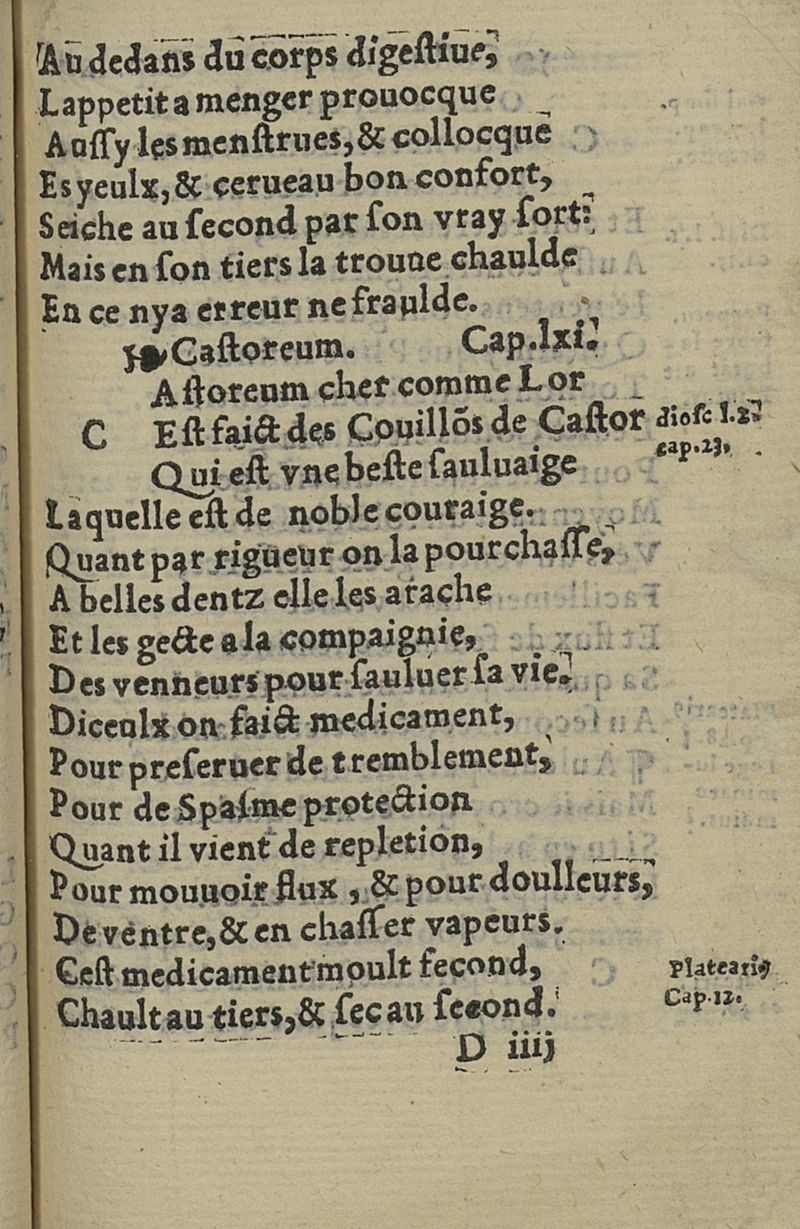 Au dedans du corps digestiue,
Lappetit a menger prouocque
Aussy les menstrues, & collocque
Es yeulx, & cerueau bon confort,
Seiche au second par son vray sort:
Mais en son tiers la trouue chaulde
En ce nya erreur ne fraulde.
Castoreum. Cap.lxi.
Astoreum cher comme Lor
C Est faict des Couillõs de Castor diosc l.2.
Qui est vne beste sauluaige cap.23.
Laquelle est de noble couraige.
Quant par rigueur on la pourchasse,
A belles dentz elle les arache
Et les gecte a la compaignie,
Des venneurs pour sauluer sa vie.
Diceulx on faict medicament,
Pour preseruer de tremblement,
Pour de Spasme protection
Quant il vient de repletion,
Pour mouuoir flux, & pour doulleurs,
De ventre, & en chasser vapeurs.
Cest medicament moult fecond, Plateariꝰ
Chault au tiers, & sec au second. Cap.12.
D iiij